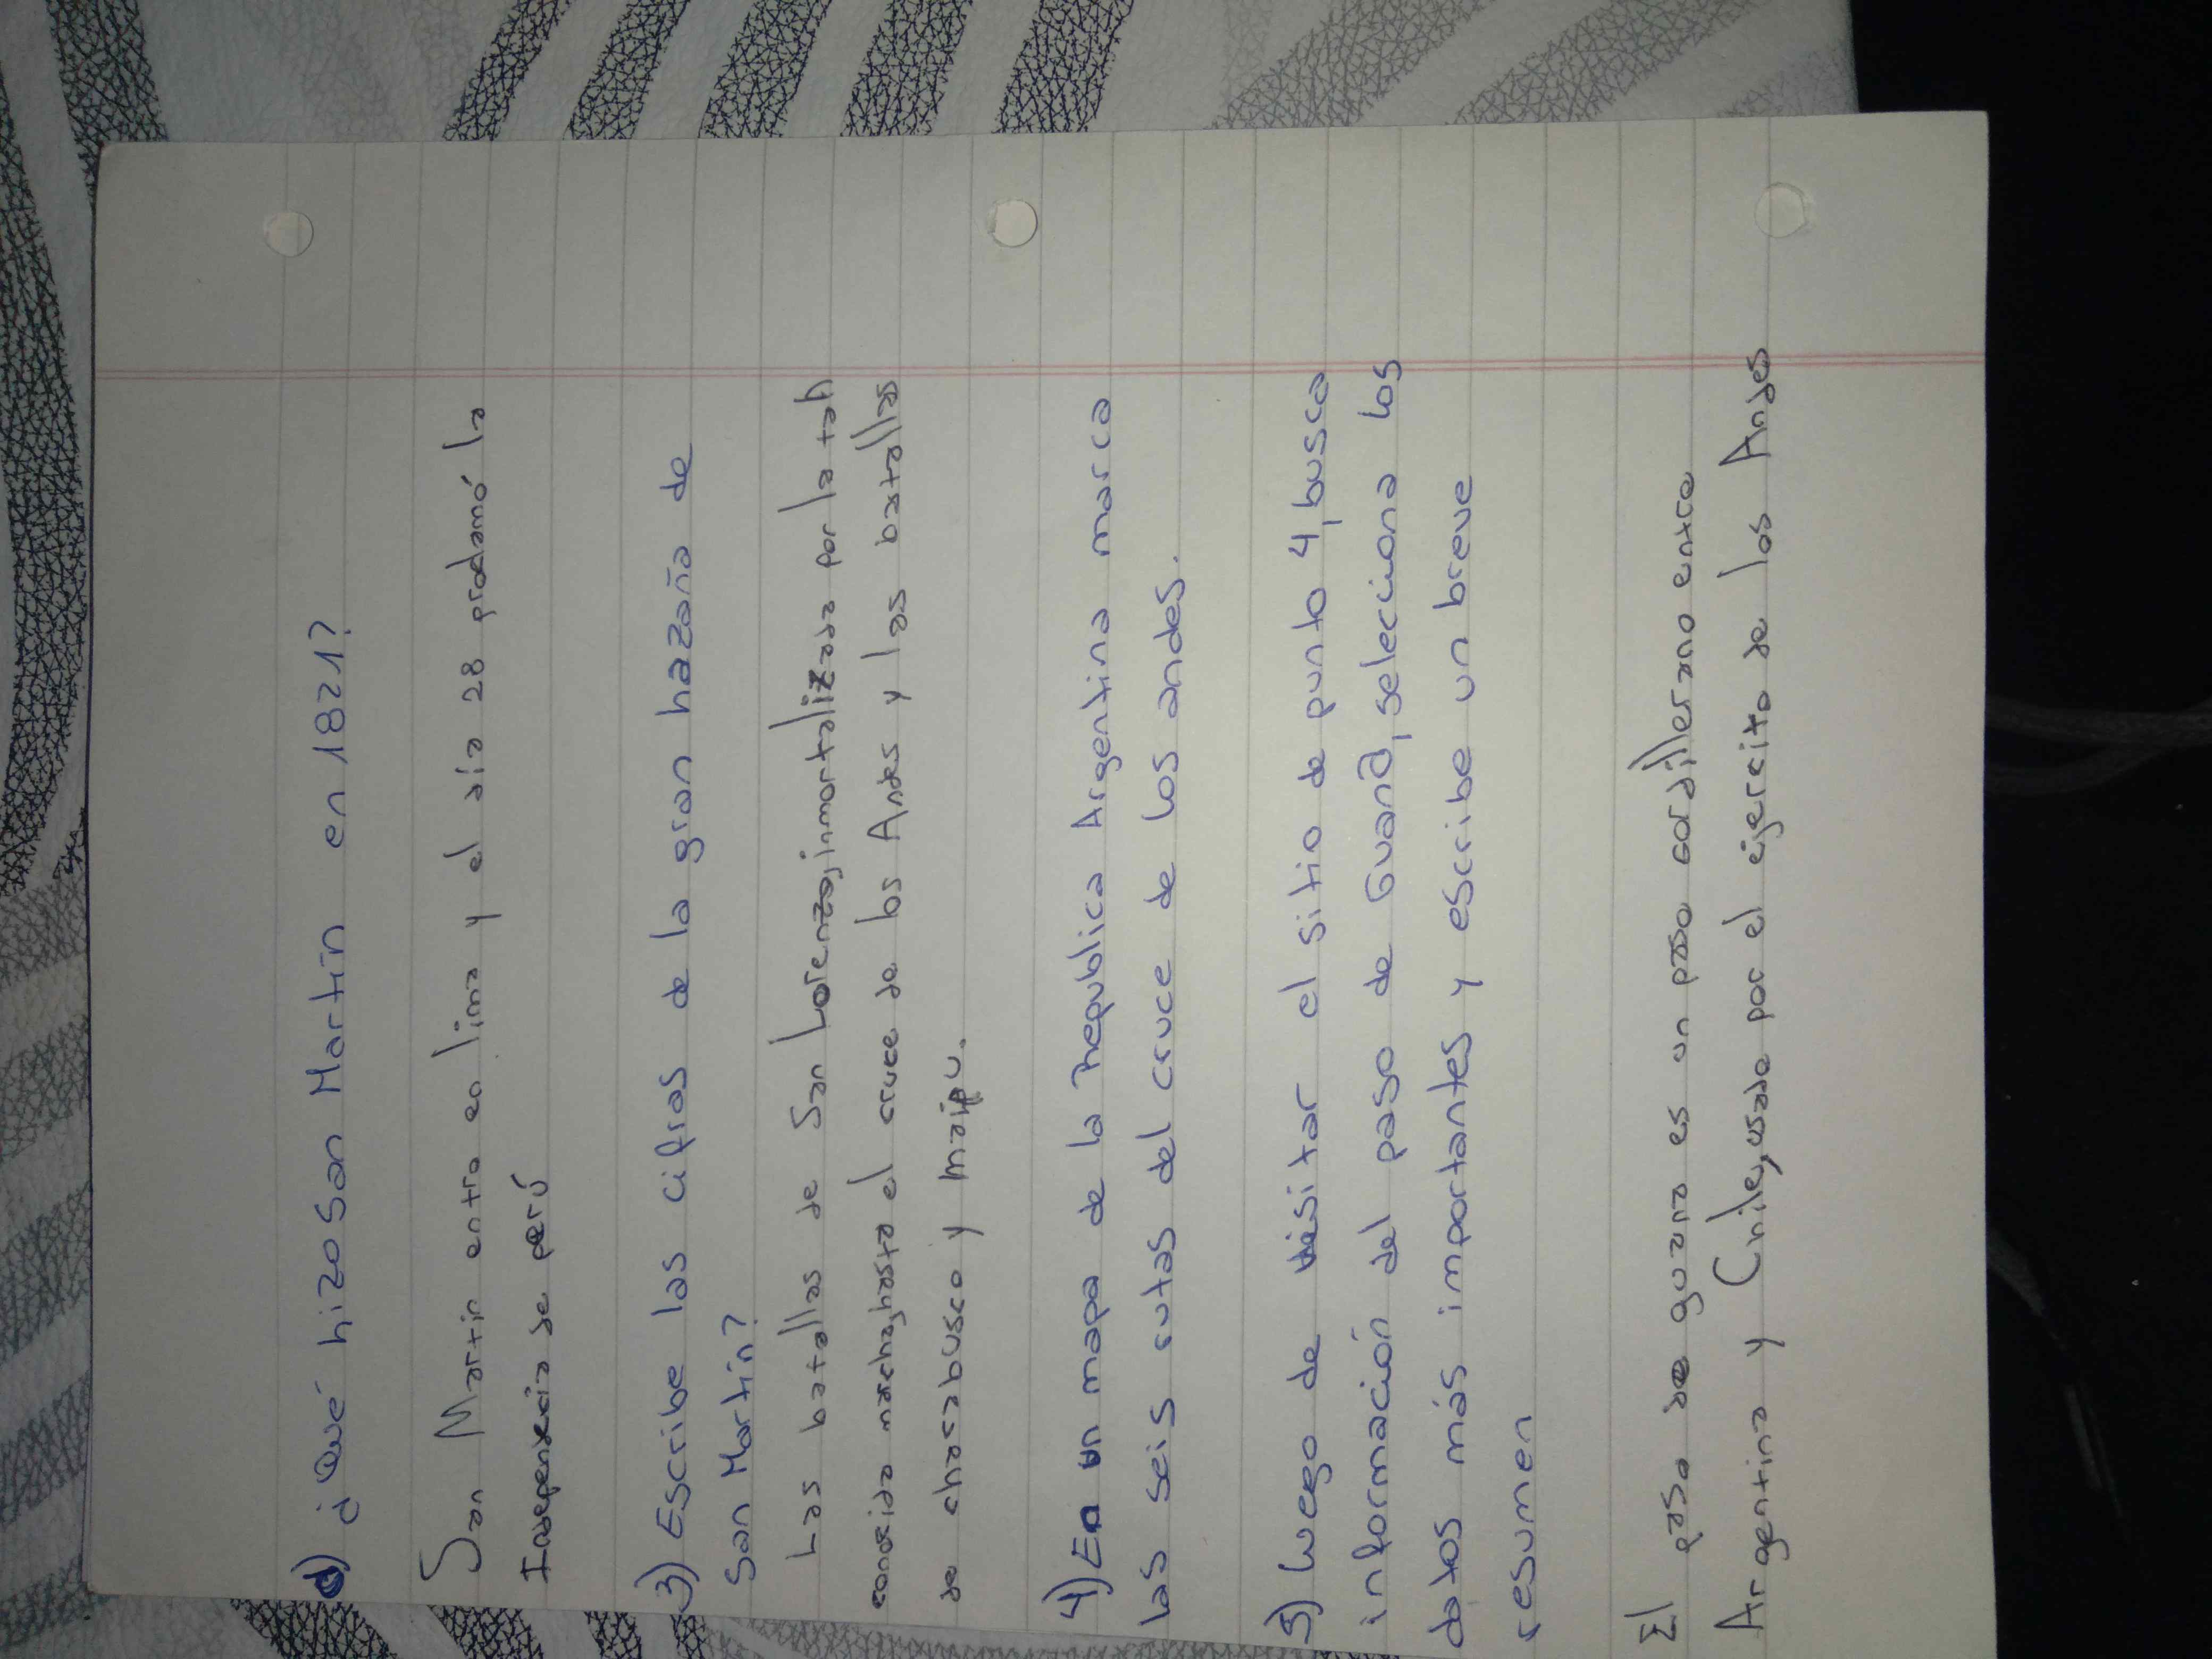 d) ¿Qué hizo San Martín en 1821?
San Martin entro en lima y el día 28 proclamó la
Independencia de perú
3) Escribe las cifras de la gran hazaña de
San Martín?
Las batallas de San Lorenzo, inmortalizada por la tah
conocida marcha, hasta el cruce de los Andes y las batallas
de chacabusco y maipu.
4) En un mapa de la Republica Argentina marca
las seis rutas del cruce de los andes.
5) luego de visitar el sitio de punto 4, busca
información del paso de Guana, selecciona los
datos más importantes y escribe un breve
resumen
El paso de guana es un paso cordillerano entre
Argentina y Chile, usado por el ejercito de los Andes